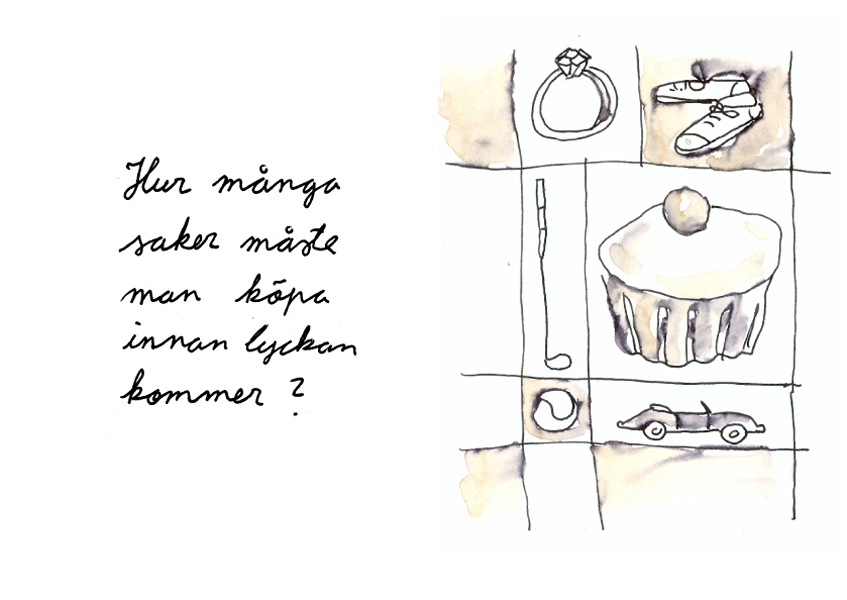 Hur många
saker måste
man köpa
innan lyckan
kommer ?